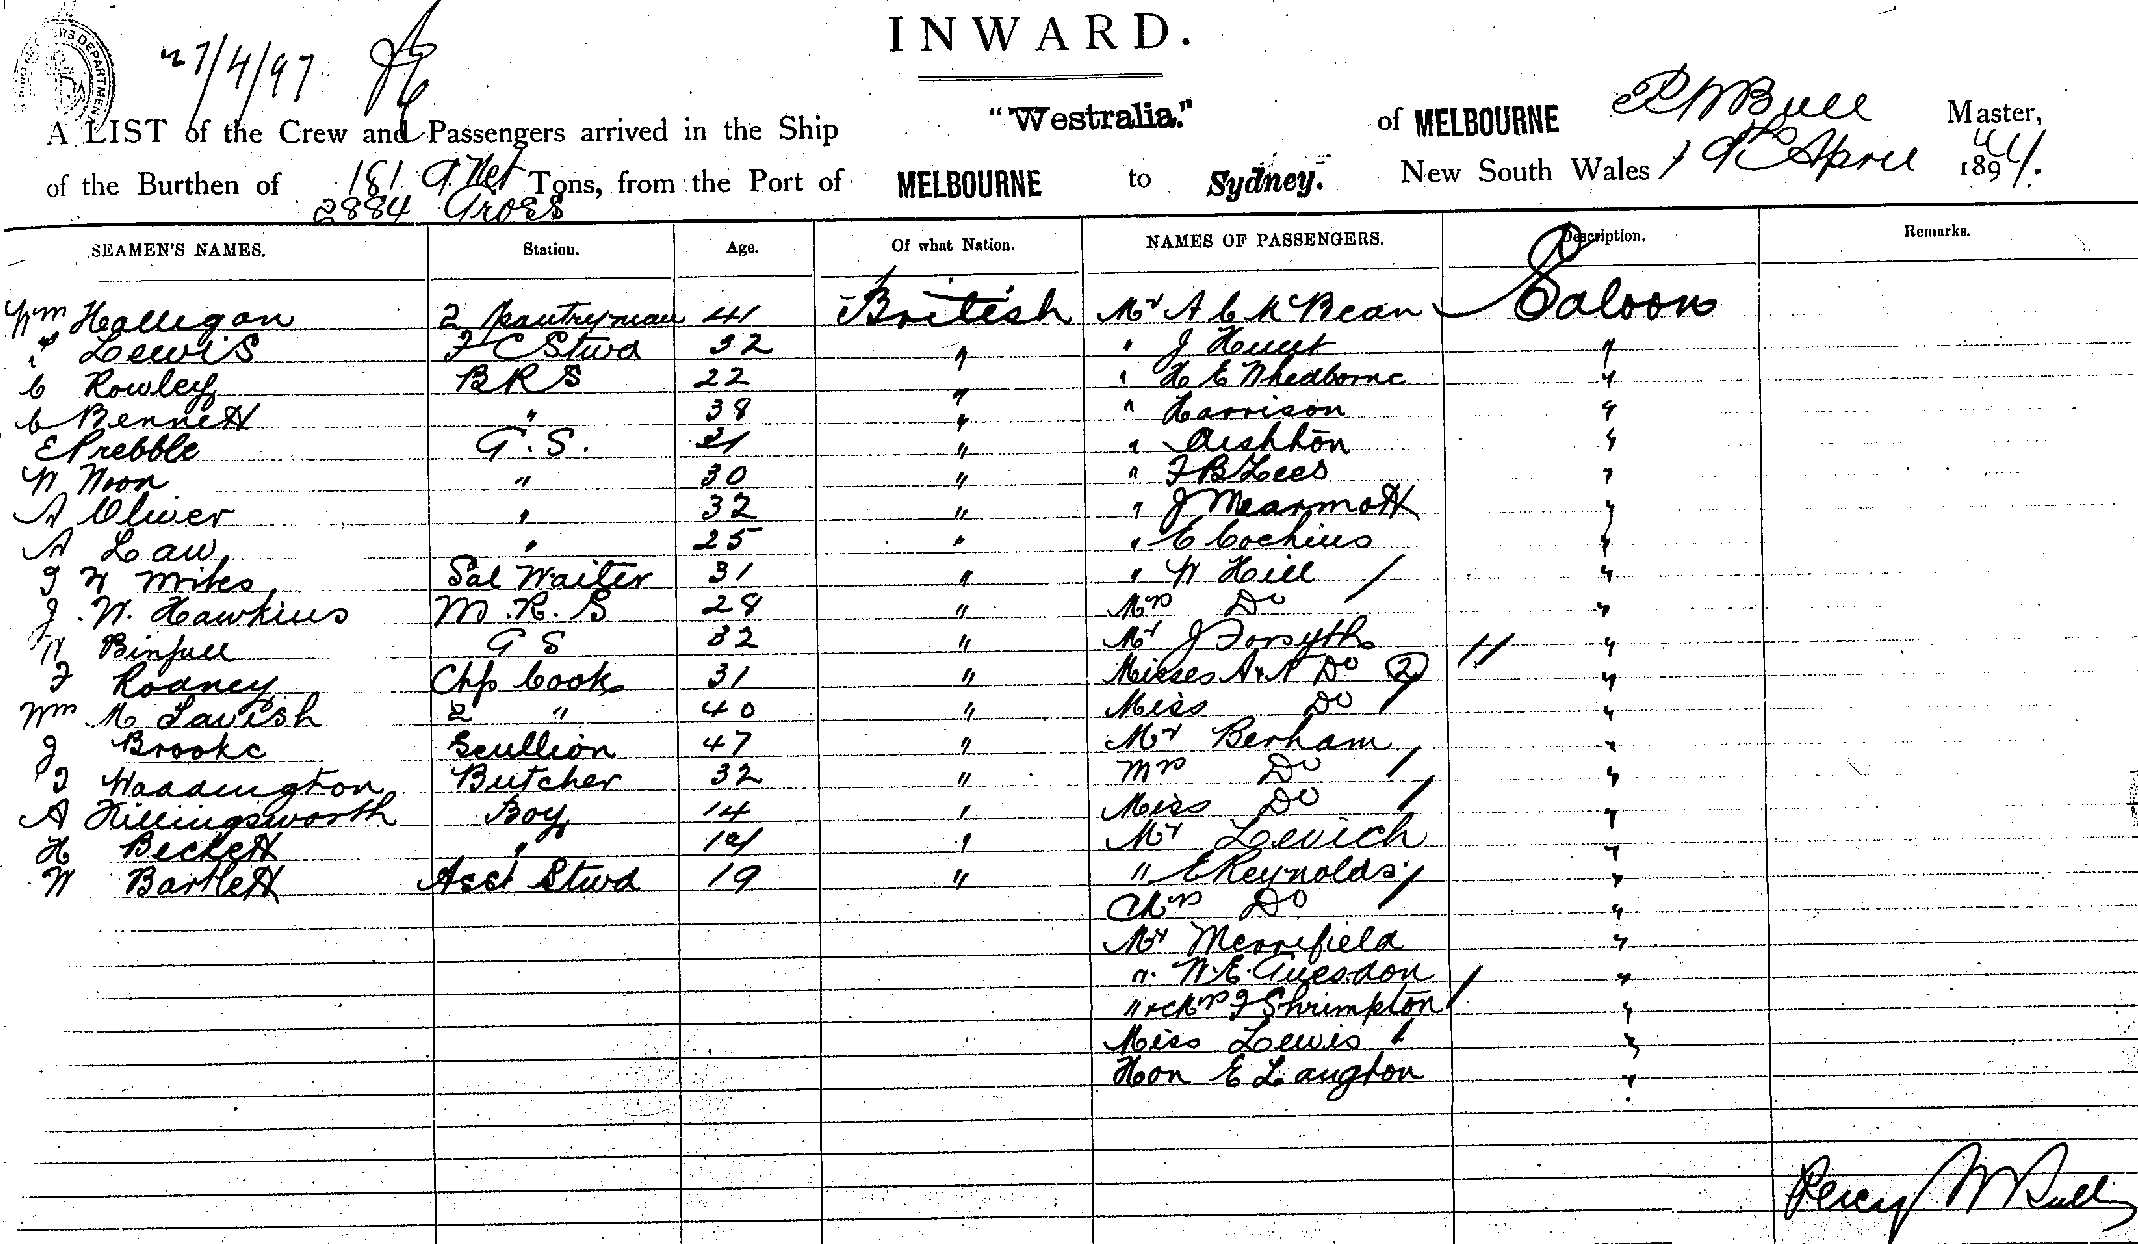 INWARD.
27/4/97
A LIST of the Crew and Passengers arrived in the Ship "Westralia." of MELBOURNE P W Bull Master,
of the Burthen of 1819 Net Tons, from the Port of MELBOURNE to Sydney. New South Wales 19th April 189
2884 Gross
SEAMEN'S NAMES. Station. Age. Of what Nation. NAMES OF PASSENGERS. Description. Remarks.
Wm Halligan 2 Pantryman 41 British Mr A C McBean Saloon
Lewis F C Stwd 32 " " J Hunt "
C Rowley B R S 22 " " H E "
C Bennett " 38 " " Harrison "
E Prebble G. S. 21 " " Aishton "
W Noon " 30 " " F B Lees "
A Oliver " 32 " " J Mearmott "
A Law " 25 " " E Cochius "
J H Miles Sal Waiter 31 " " W Hill "
J. W. Hawkins M. R. S 28 " Mrs Do "
W Binfull G S 32 " Mr J Forsyth "
F Rodney Chf Cook 31 " Misses A & N Do (2) "
Wm M Lavish 2 " 40 " Miss Do "
J Brooke Scullion 47 " Mr Berham "
J Waddington Butcher 32 " Mrs Do "
A Killingsworth Boy 14 " Miss Do "
H Beckett " " Mr Levich "
W Bartlett Asst Stwd 19 " " E Reynolds "
Mrs Do "
Mr Merrefield "
" W. E. Guesdon "
" & Mrs J Shrimpton "
Miss Lewis "
Hon E Langton "
Percy W Bull